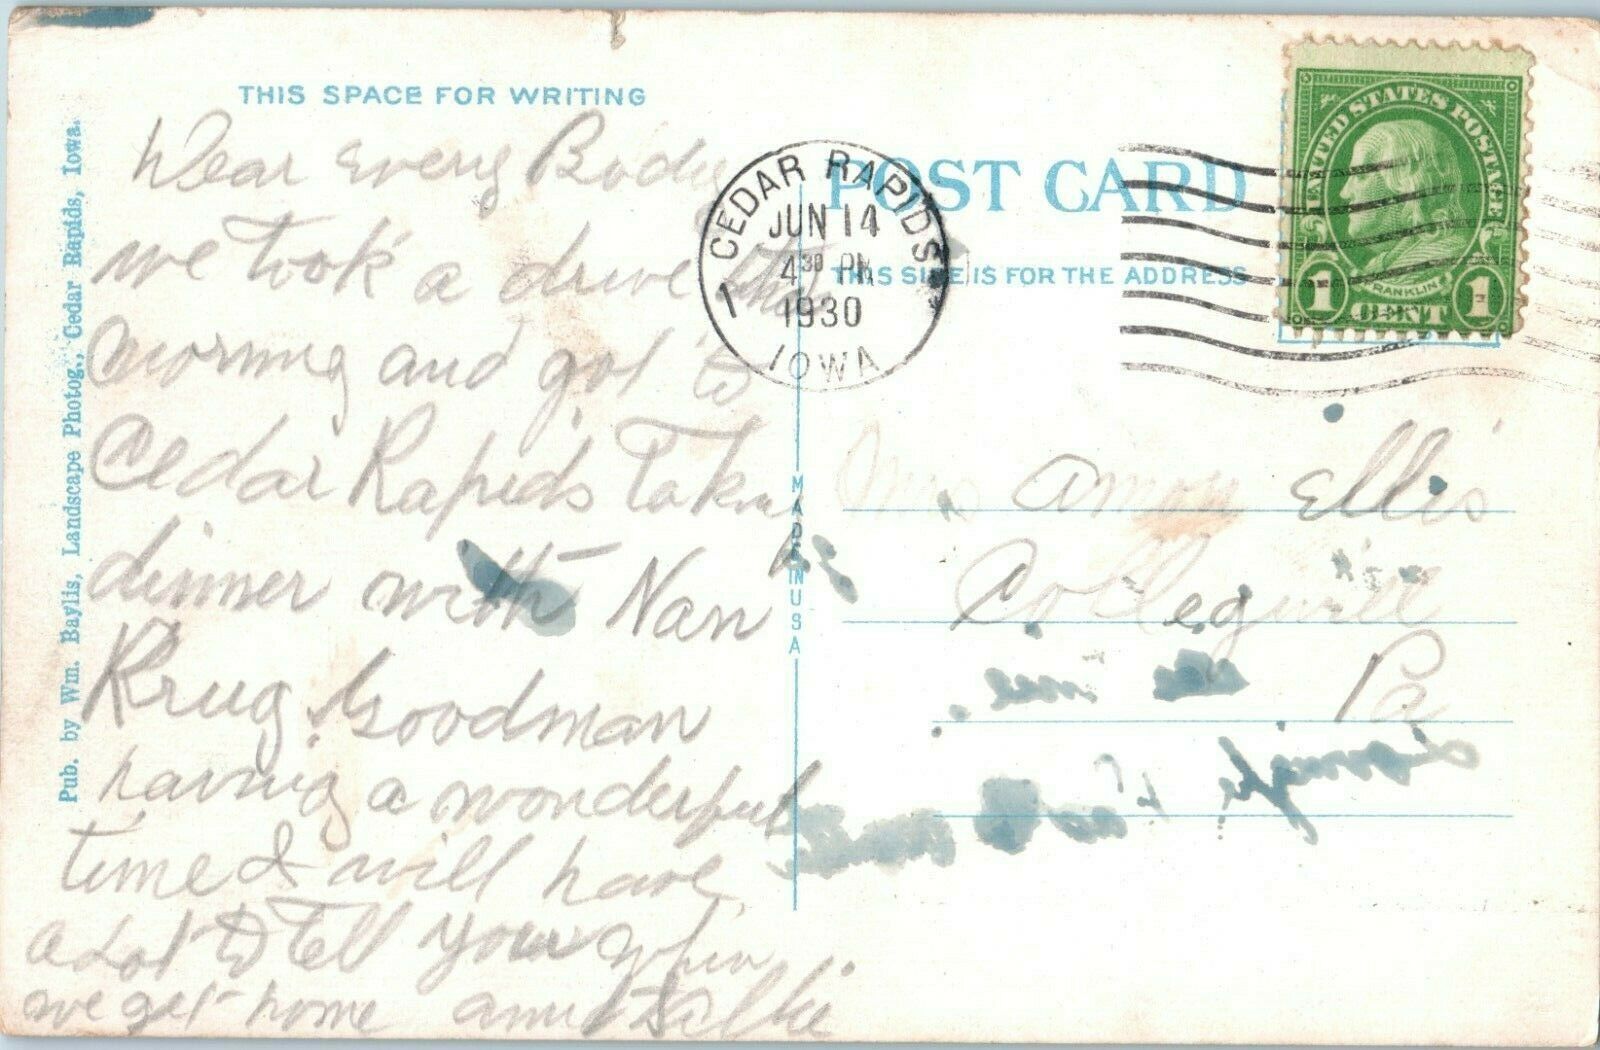 THIS SPACE FOR WRITING
Dear Every Body
we took a drive this
morning and got to
Cedar Rapids Takin
dinner with Nan
Krug Goodman
having a wonderful
time & will have
a Lot to Tell you when
we get home
Pub. by Wm. Baylis, Landscape Photog., Cedar Rapids, Iowa.
MADE IN USA
CEDAR RAPIDS
1
JUN 14
4 30 PM
1930
IOWA
POST CARD
THIS SIDE IS FOR THE ADDRESS
UNITED STATES POSTAGE
FRANKLIN
1 CENT 1
Mrs Amon Ellis
Collegeville
Pa